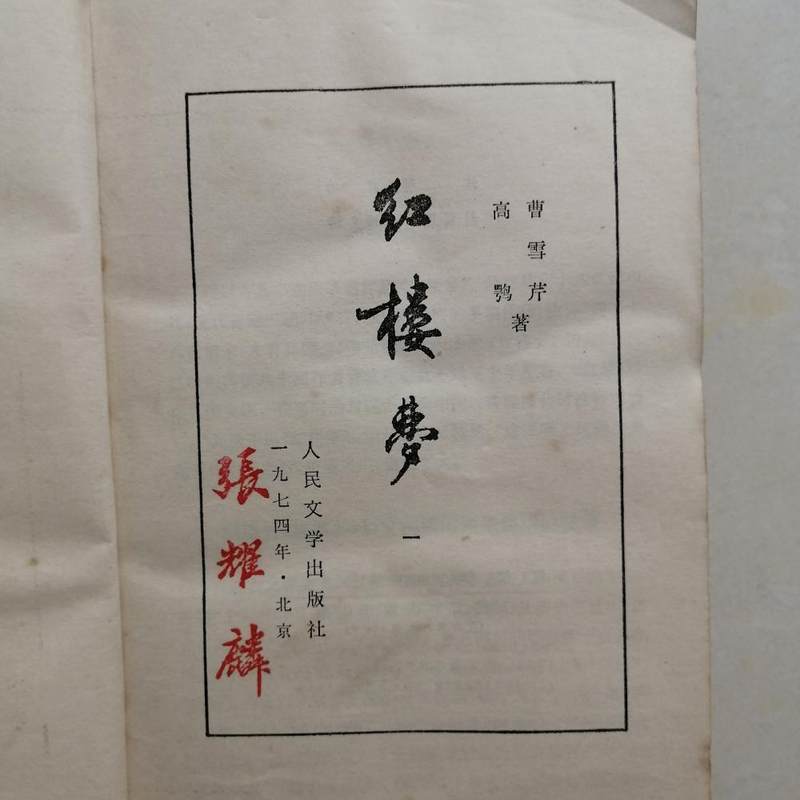 曹雪芹
高鹗
著
红楼梦
一
人民文学出版社
一九七四年·北京
張耀麟